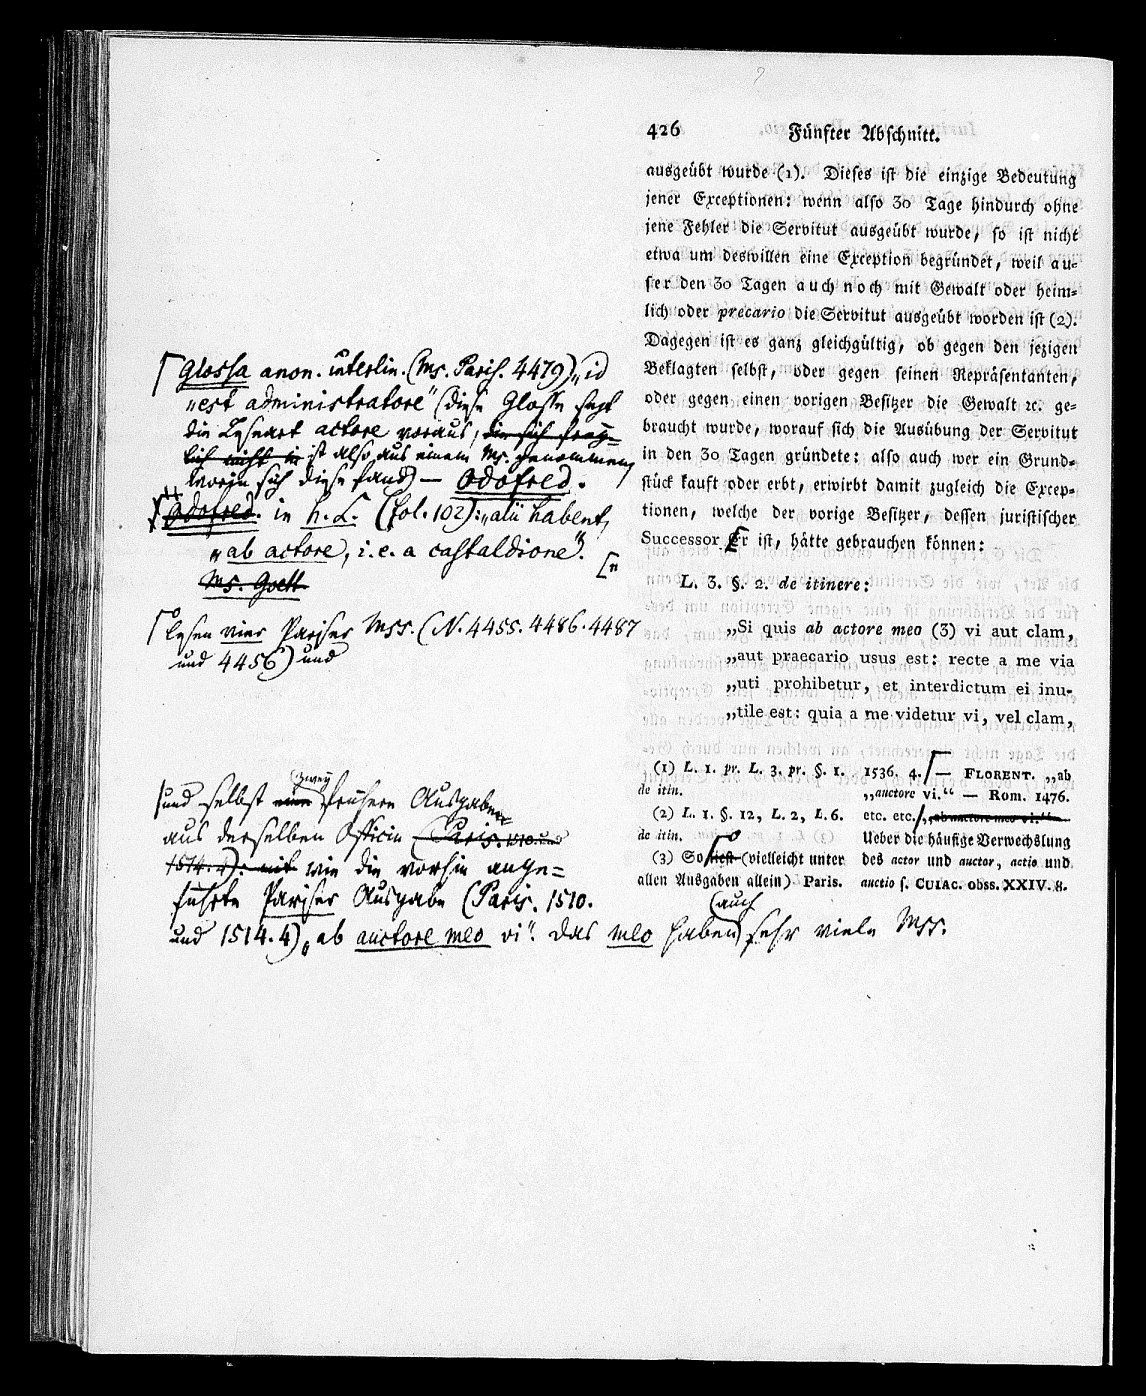 426 Fünfter Abschnitt.
ausgeübt wurde (1). Dieses ist die einzige Bedeutung
jener Exceptionen: wenn also 30 Tage hindurch ohne
jene Fehler die Servitut ausgeübt wurde, so ist nicht
etwa um deswillen eine Exception begründet, weil au-
ser den 30 Tagen auch noch mit Gewalt oder heim-
lich oder precario die Servitut ausgeübt worden ist (2).
Dagegen ist es ganz gleichgültig, ob gegen den jezigen
Beklagten selbst, oder gegen seinen Repräsentanten,
oder gegen einen vorigen Besitzer die Gewalt ꝛc. ge-
braucht wurde, worauf sich die Ausübung der Servitut
in den 30 Tagen gründete: also auch wer ein Grund-
stück kauft oder erbt, erwirbt damit zugleich die Excep-
tionen, welche der vorige Besitzer, dessen juristischer
Successor Er ist, hätte gebrauchen können:
L. 3. §. 2. de itinere:
„Si quis ab actore meo (3) vi aut clam,
„aut praecario usus est: recte a me via
„uti prohibetur, et interdictum ei inu-
„tile est: quia a me videtur vi, vel clam,
(1) L. 1. pr. L. 3. pr. §. 1.
de itin.
(2) L. 1. §. 12, L. 2, L. 6.
de itin.
(3) So liest (vielleicht unter
allen Ausgaben allein) Paris.
1536. 4. — FLORENT. „ab
„auctore vi.“ — Rom. 1476.
etc. etc. „ab auctore meo vi.“
Ueber die häufige Verwechslung
des actor und auctor, actio und
auctio s. CUIAC. obss. XXIV. 8.
Glossa anon. interlin. (Ms. Paris. 4479) „id
„est administratore“ (diese Glosse setzt
die Leseart actore voraus, die sich freÿ-
lich nicht in ist also aus einem Ms. genommen,
worin sich diese fand) — Odofred.
Odofred. in h. L. (fol. 102): „alii habent,
„ab actore, i. e. a castaldione“.
Ms. Goett.
lesen vier Pariser Mss. (N. 4455. 4486. 4487
und 4456) und
und selbst eine zweÿ frühere Ausgaben
aus derselben Officin (Paris. 1510 und
1514. 4): mit wie die vorhin ange-
führte Pariser Ausgabe (Paris. 1510.
und 1514. 4) „ab auctore meo vi“. Das meo haben auch sehr viele Mss.